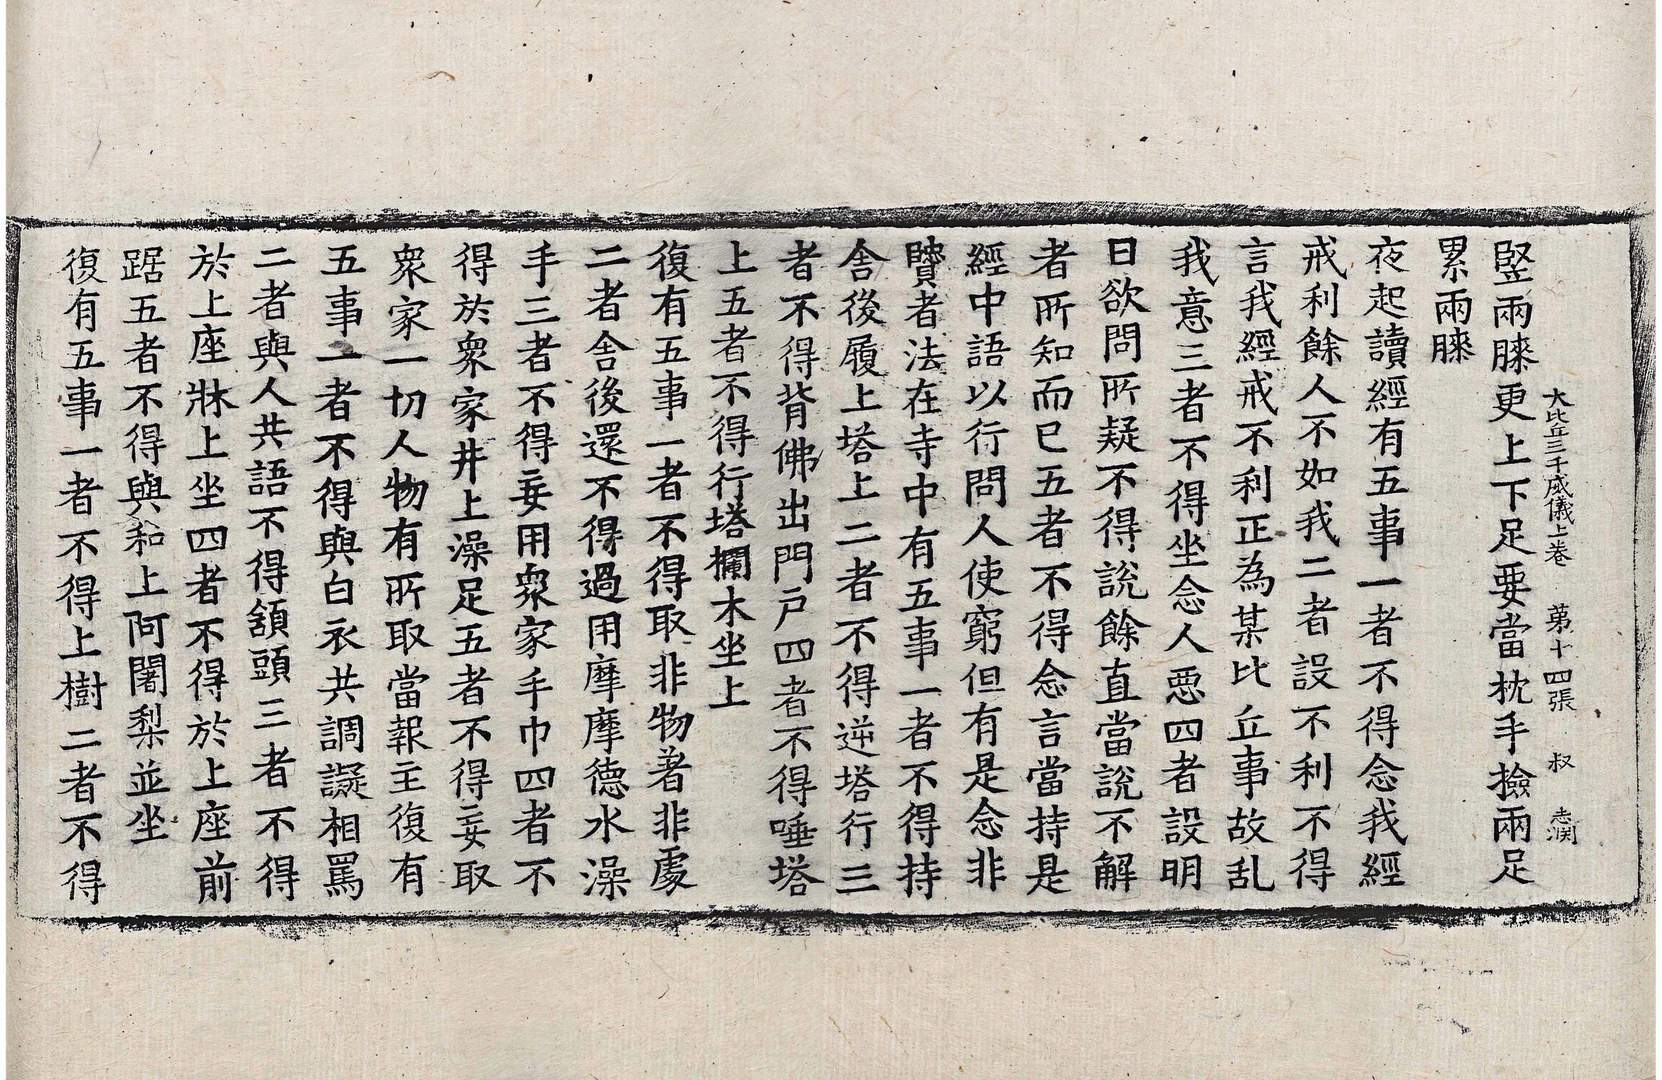 大比丘三千威儀上卷　第十四張　叔　志淵
竪兩膝更上下足要當枕手撿兩足
累兩膝
夜起讀經有五事一者不得念我經
戒利餘人不如我二者設不利不得
言我經戒不利正為某比丘事故乱
我意三者不得坐念人惡四者設明
日欲問所疑不得說餘直當說不解
者所知而已五者不得念言當持是
經中語以行問人使窮但有是念非
賢者法在寺中有五事一者不得持
舍後履上塔上二者不得逆塔行三
者不得背佛出門戶四者不得唾塔
上五者不得行塔欄木坐上
復有五事一者不得取非物著非處
二者舍後還不得過用摩摩德水澡
手三者不得妄用衆家手巾四者不
得於衆家井上澡足五者不得妄取
衆家一切人物有所取當報主復有
五事一者不得與白衣共調譺相罵
二者與人共語不得頟頭三者不得
於上座牀上坐四者不得於上座前
踞五者不得與和上阿闍梨並坐
復有五事一者不得上樹二者不得